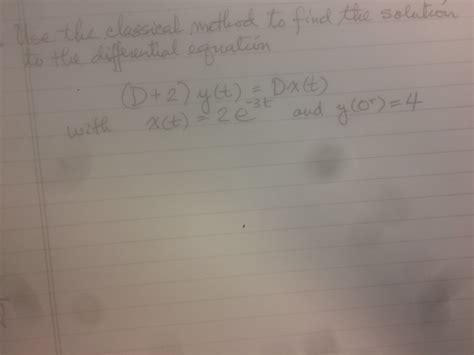 Use the classical method to find the solution
to the differential equation
(D+2) y(t) = Dx(t)
with x(t) = 2e^{-3t} and y(0⁺) = 4